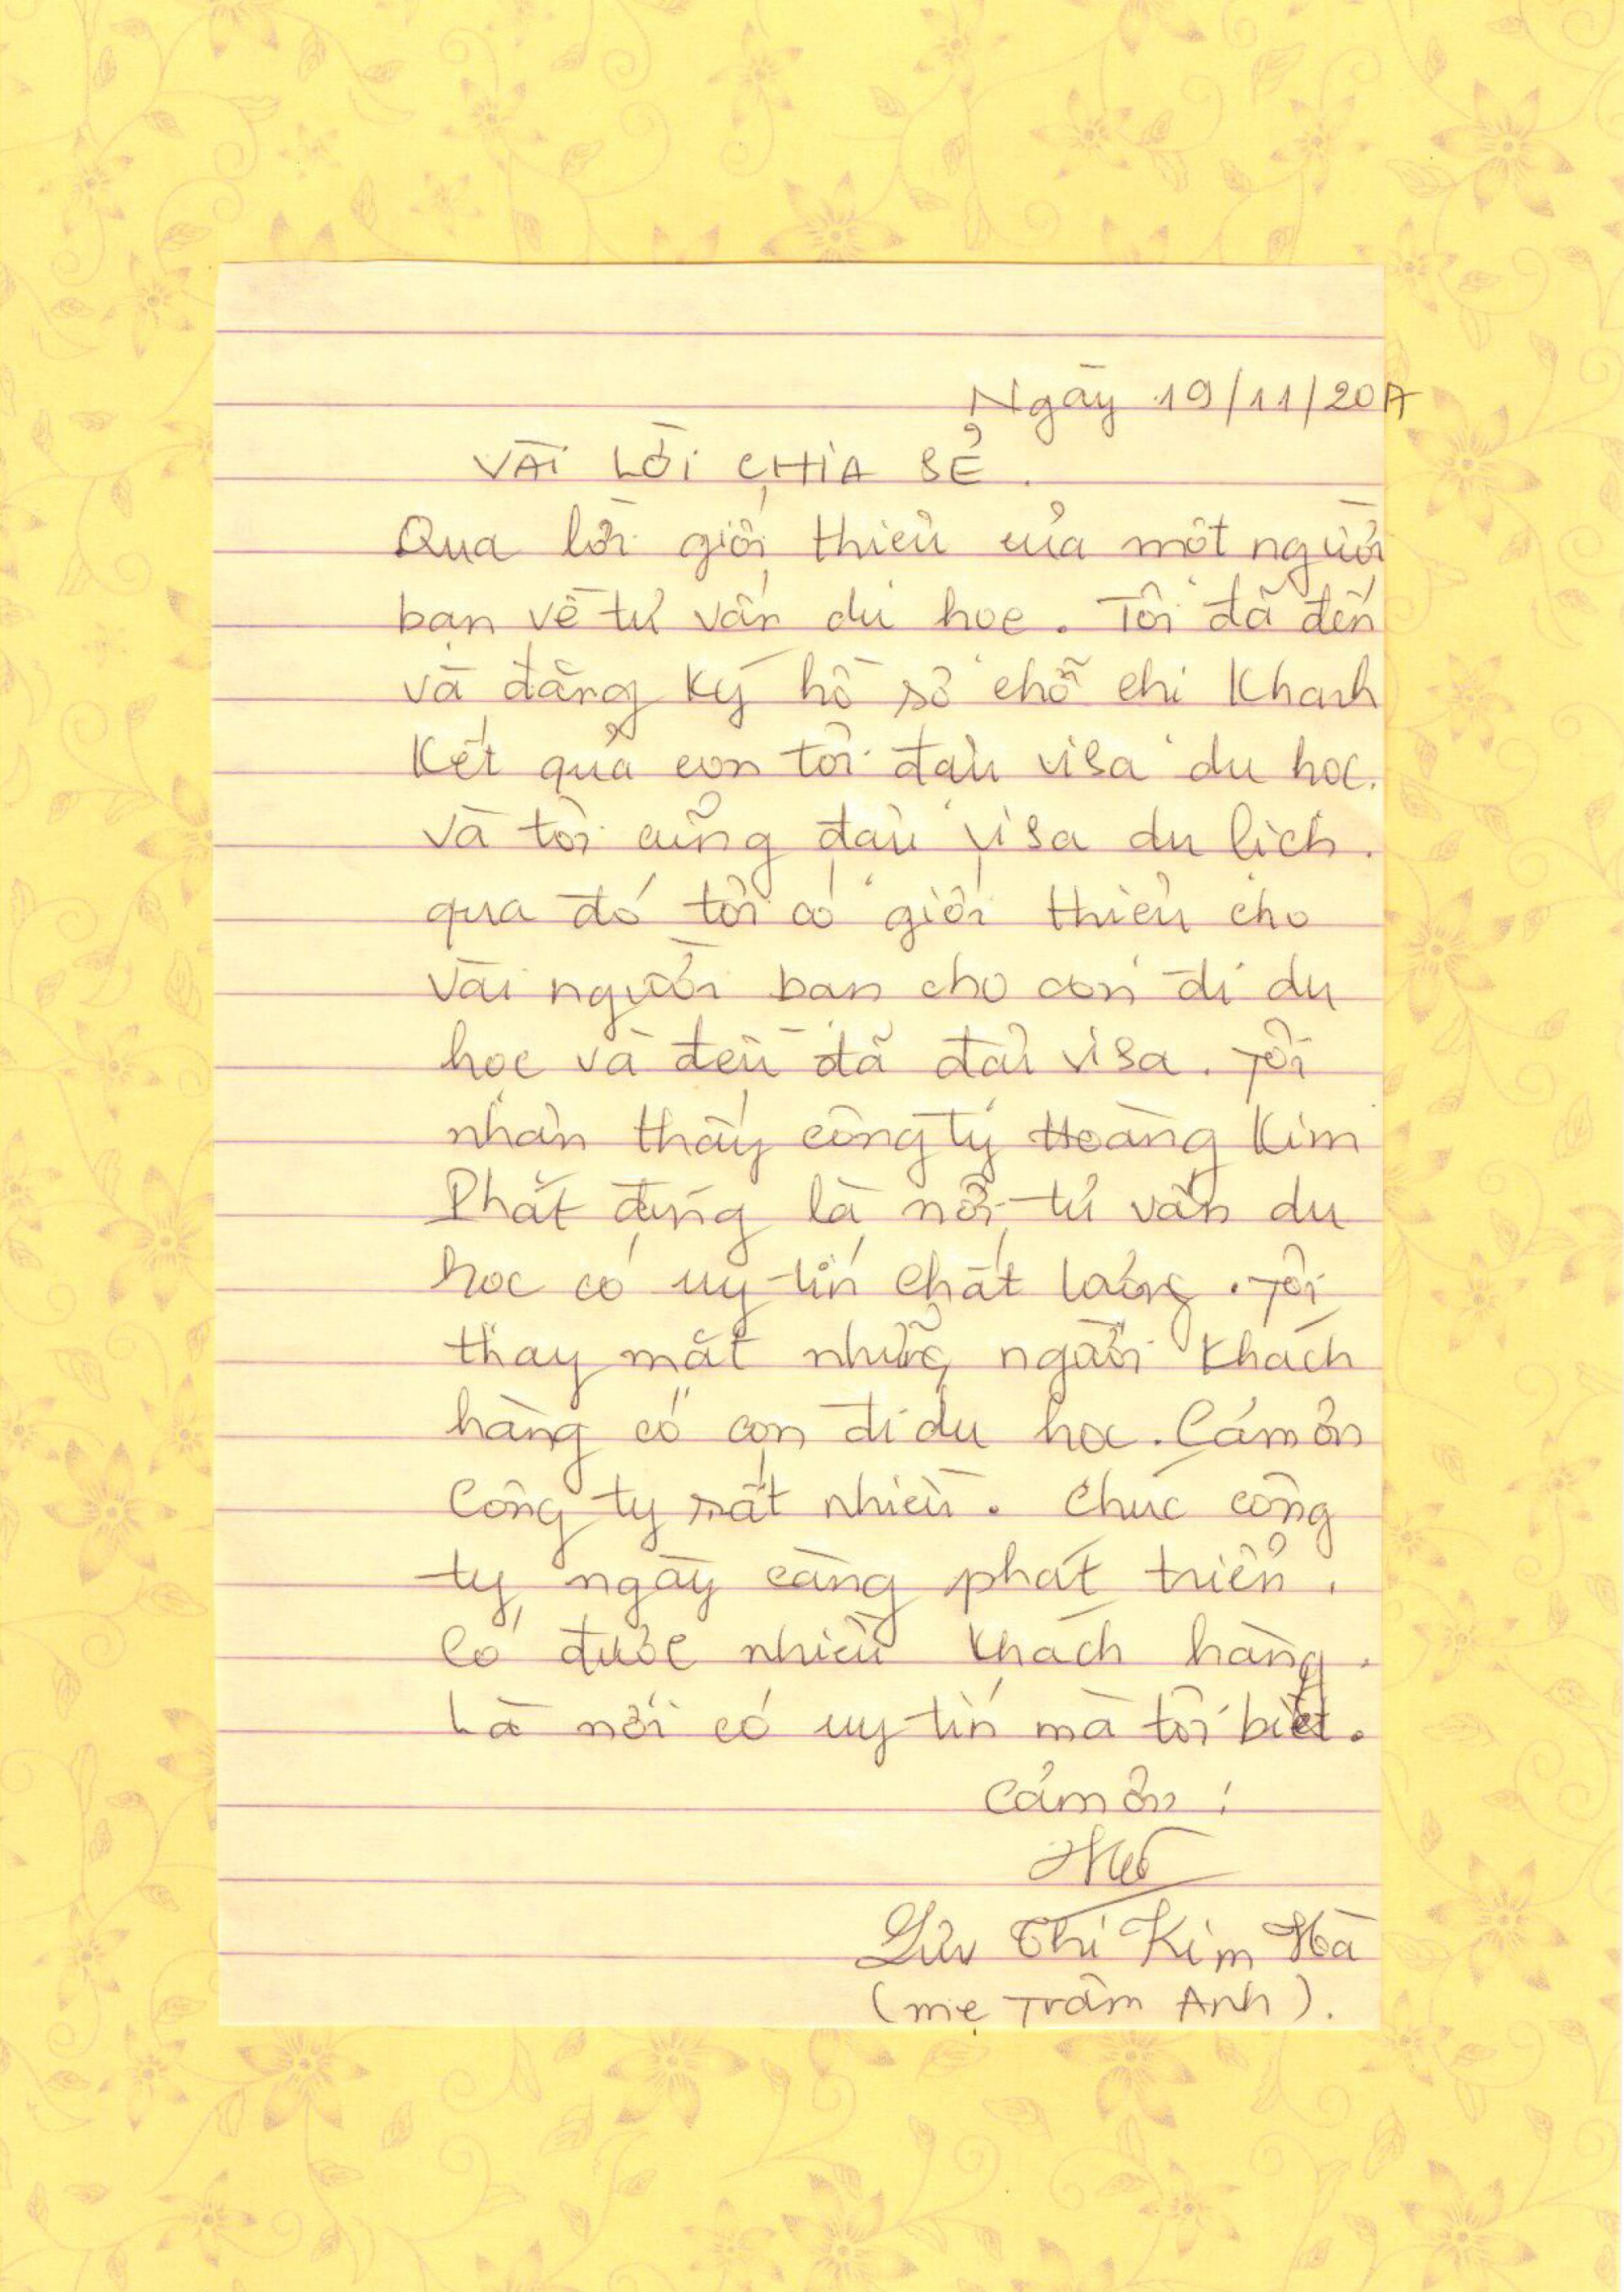 Ngày 19/11/2017
VÀI LỜI CHIA SẺ.
Qua lời giới thiệu của một người
bạn về tư vấn du học. Tôi đã đến
và đăng ký hồ sơ chỗ chị Khanh
Kết quả con tôi đậu visa du học.
và tôi cũng đậu visa du lịch.
qua đó tôi có giới thiệu cho
vài người bạn cho con đi du
học và đều đã đậu visa. Tôi
nhận thấy công ty Hoàng Kim
Phát đúng là nơi tư vấn du
học có uy tín chất lượng. Tôi
thay mặt những người khách
hàng có con đi du học. Cám ơn
Công ty rất nhiều. Chúc công
ty ngày càng phát triển.
Có được nhiều khách hàng.
Là nơi có uy tín mà tôi biết.
Cảm ơn!
Lưu Thị Kim Hà
(mẹ Trâm Anh).